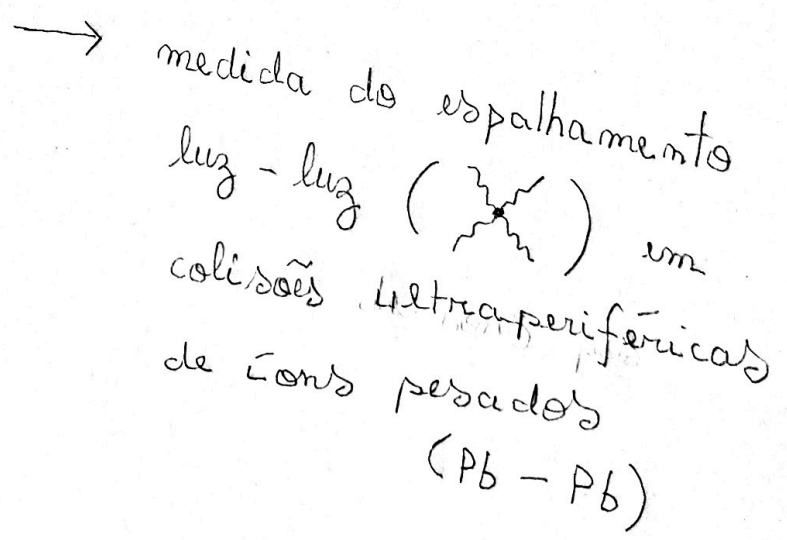 → medida do espalhamento
luz - luz ( ) em
colisões ultraperiféricas
de íons pesados
(Pb - Pb)